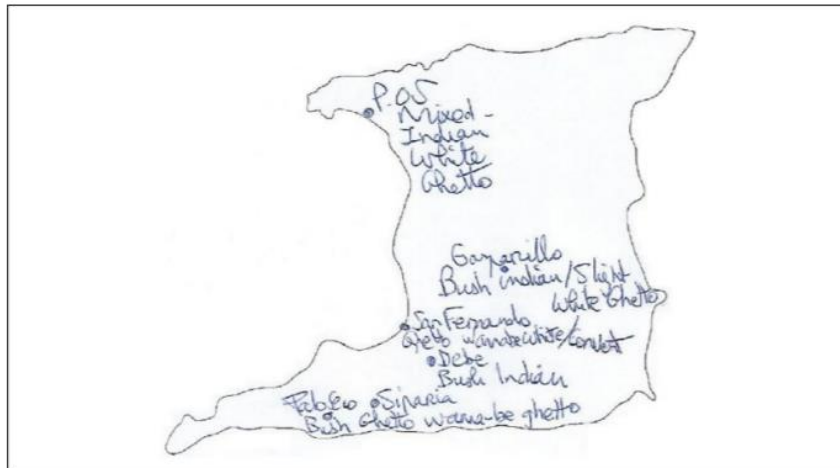 P.O.S
Mixed -
Indian
White
Ghetto
Gasparillo
Bush indian/Slight
White Ghetto
San Fernando
Ghetto wannabe white/convent
Debe
Bush Indian
Siparia
Bush Ghetto wanna-be ghetto